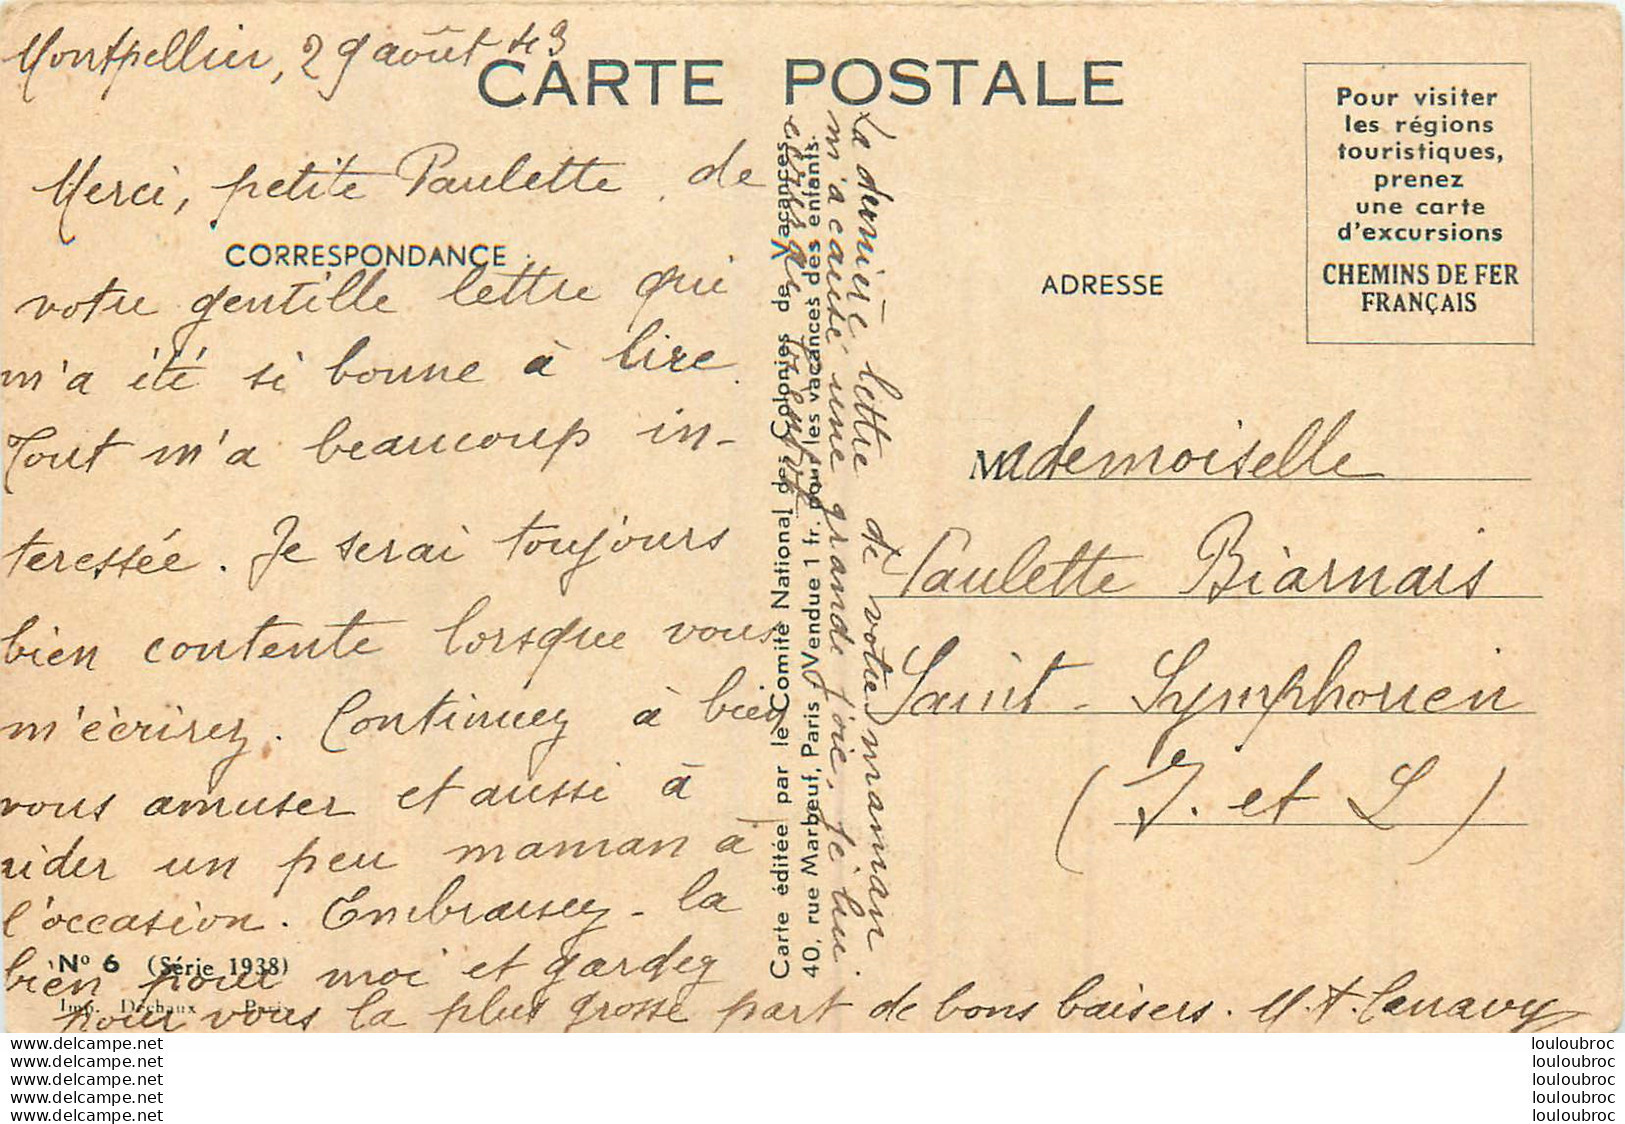 Montpellier, 29 août 43
CARTE POSTALE
Pour visiter
les régions
touristiques,
prenez
une carte
d'excursions
CHEMINS DE FER
FRANÇAIS
Merci, petite Paulette de
CORRESPONDANCE
votre gentille lettre qui
m'a été si bonne à lire.
Tout m'a beaucoup in-
teressée. Je serai toujours
bien contente lorsque vous
m'écrirez. Continuez à bien
vous amuser et aussi à
aider un peu maman à
l'occasion. Embrassez-la
bien pour moi et gardez
pour vous la plus grosse part de bons baisers. M. A.
Nº 6 (Série 1938)
Imp. Déchaux Paris
Carte éditée par le Comité National des Colonies de Vacances,
40, rue Marbeuf, Paris. Vendue 1 fr. pour les vacances des enfants.
La dernière lettre de votre maman
m'a causé une grande joie, j'ai
ADRESSE
Mademoiselle
Paulette Biarnais
Saint-Symphorien
(I. et L)
www.delcampe.net
www.delcampe.net
www.delcampe.net
www.delcampe.net
www.delcampe.net
louloubroc
louloubroc
louloubroc
louloubroc
louloubroc